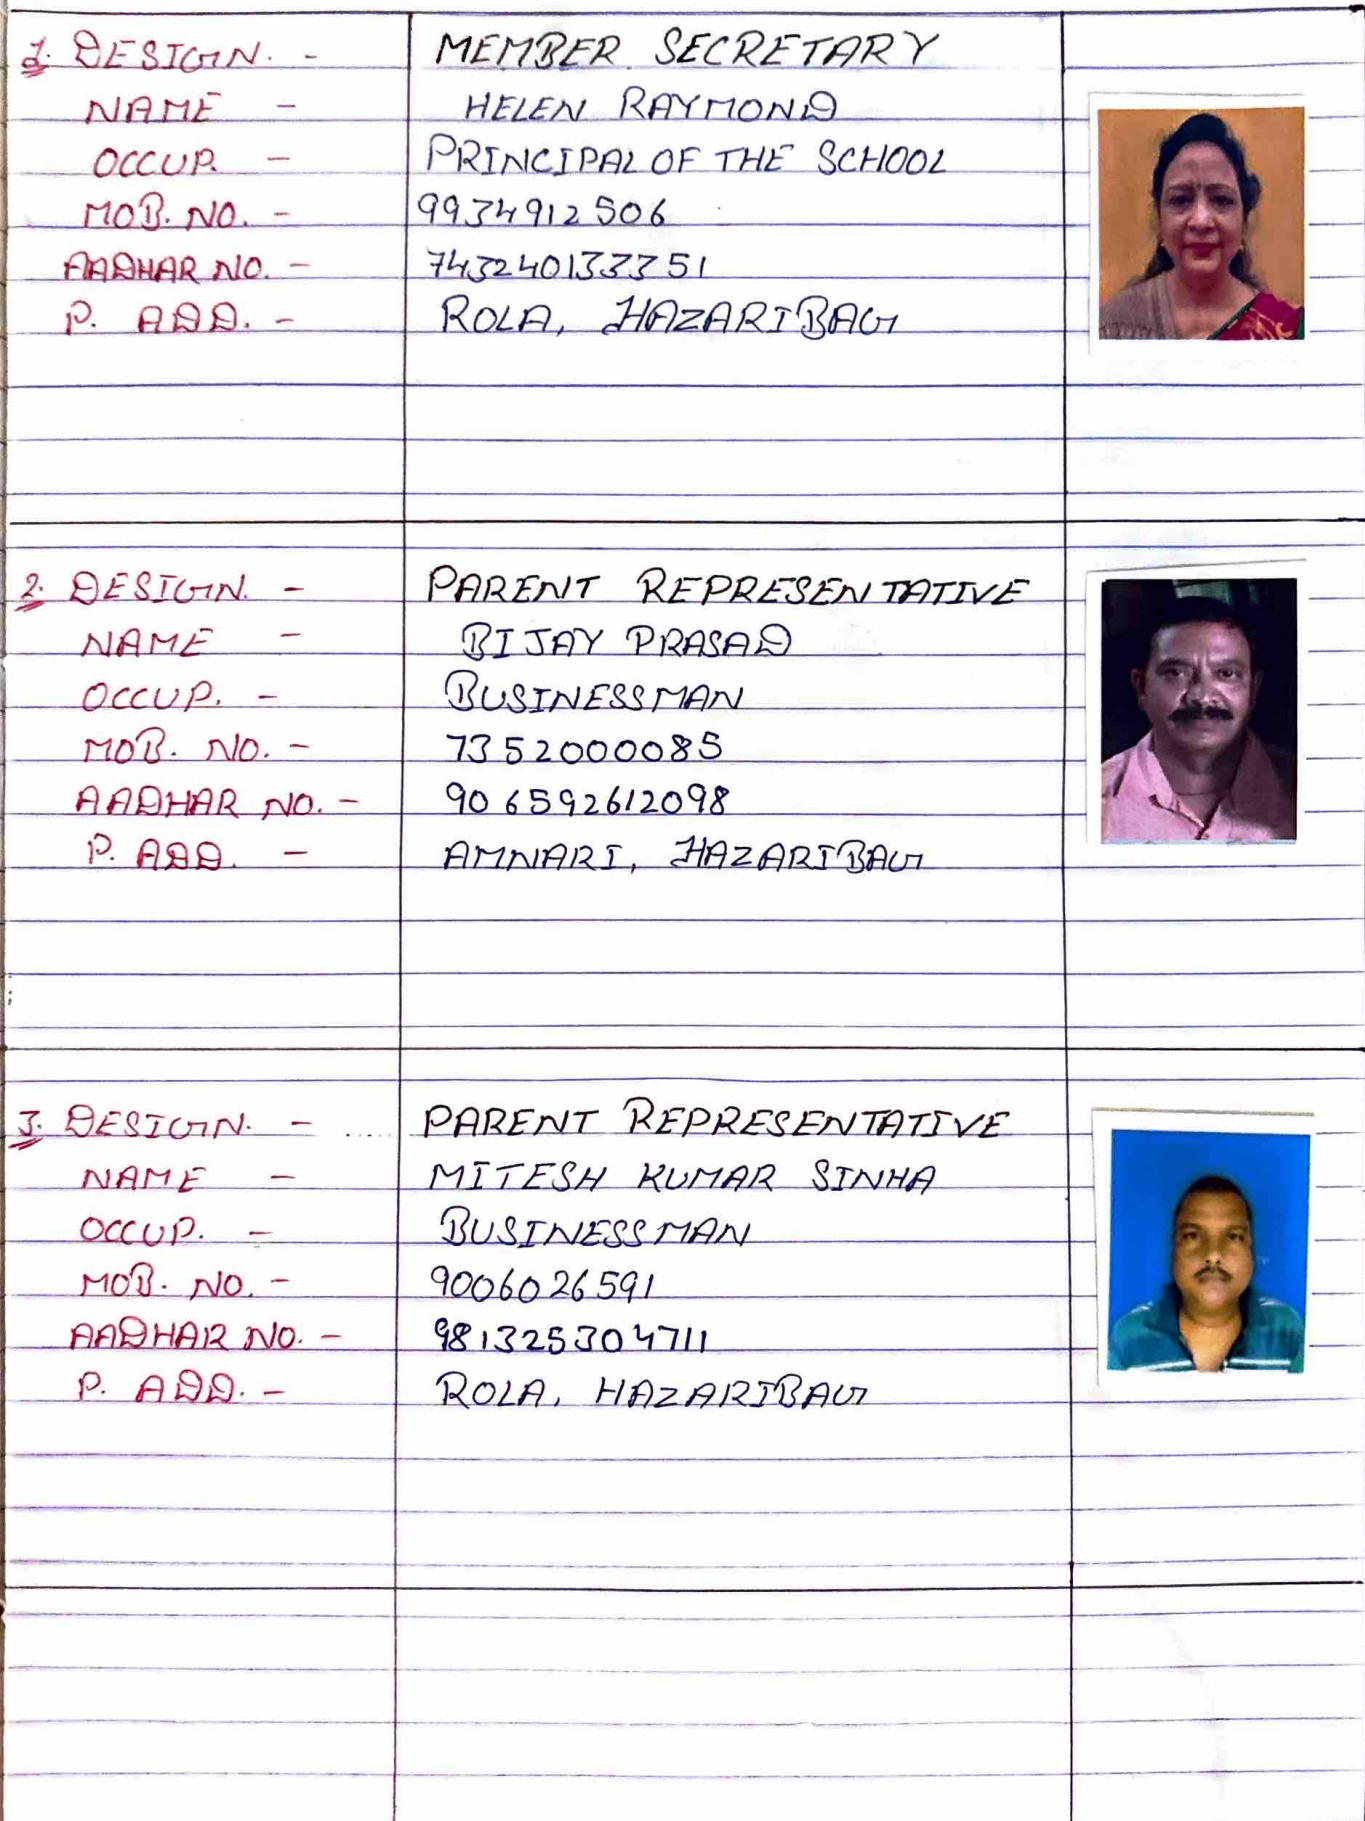 1. DESIGN. - MEMBER SECRETARY
NAME - HELEN RAYMOND
OCCUP. - PRINCIPAL OF THE SCHOOL
MOB. NO. - 9934912506
AADHAR NO. - 743240133351
P. ADD. - ROLA, HAZARIBAG
2. DESIGN. - PARENT REPRESENTATIVE
NAME - BIJAY PRASAD
OCCUP. - BUSINESSMAN
MOB. NO. - 7352000085
AADHAR NO. - 906592612098
P. ADD. - AMNARI, HAZARIBAG
3. DESIGN. - PARENT REPRESENTATIVE
NAME - MITESH KUMAR SINHA
OCCUP. - BUSINESSMAN
MOB. NO. - 9006026591
AADHAR NO. - 981325304711
P. ADD. - ROLA, HAZARIBAG